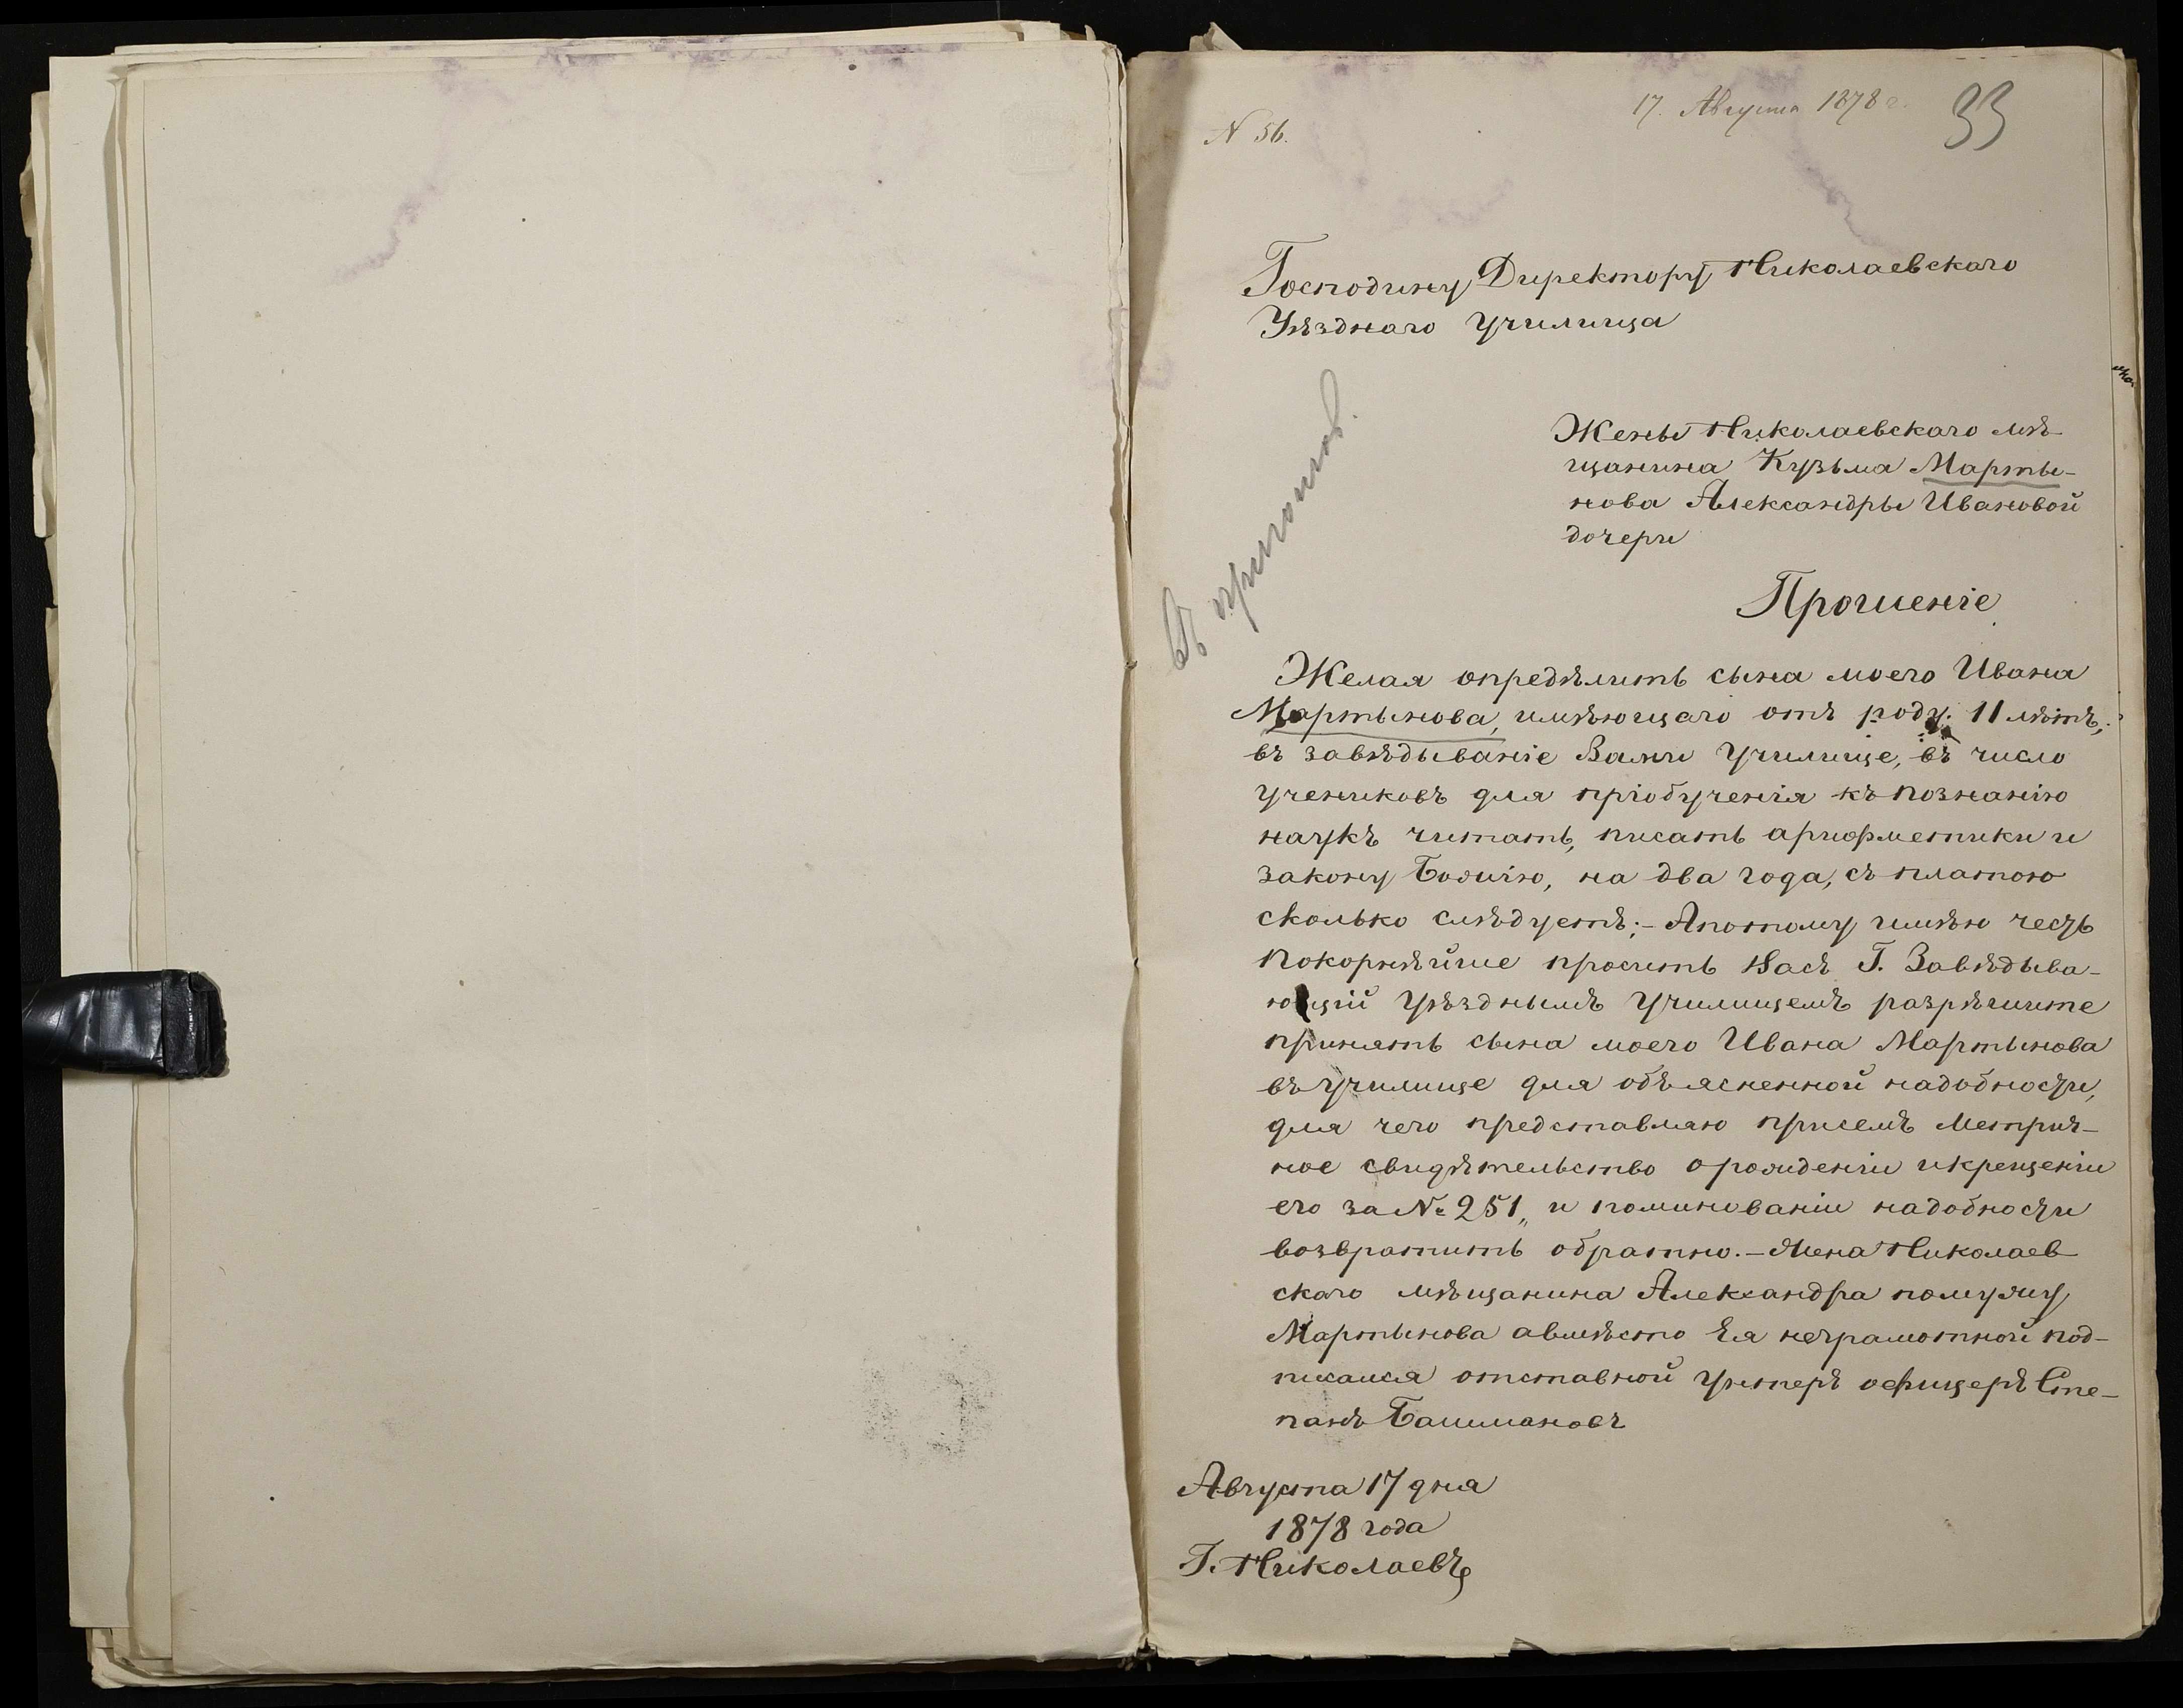 17. Августа 1878 г. 33
N 56.
Господину Директору Николаевскаго
Уѣзднаго Училища
Жены Николаевскаго мѣ-
щанина Кузьма Марты-
нова Александры Ивановой
дочери
Прошеніе
Желая опредѣлить сына моего Ивана
Мартынова, имѣющаго отъ роду. 11 лѣтъ,
въ завѣдываніе Вами Училище, въ число
учениковъ для пріобученія къ познанію
наукъ читать, писать ариѳметики и
закону Божію, на два года, съ платою
сколько слѣдуетъ;- Апотому имѣю честь
покорнѣйше просить Васъ Г. Завѣдыва-
ющій Уѣзднымъ Училищемъ разрѣшите
принять сына моего Ивана Мартынова
въ училище для объясненной надобности,
для чего представляю присемъ Метрич-
ное свидѣтельство орожденіи икрещеніи
его за № 251„ и поминованіи надобности
возвратить обратно.- Жена Николаев-
скаго мѣщанина Александра помужу
Мартынова авмѣсто Ея неграмотной под-
писался отставной унтеръ офицеръ Сте-
панъ Башмановъ
Августа 17 дня
1878 года
Г. Николаевъ